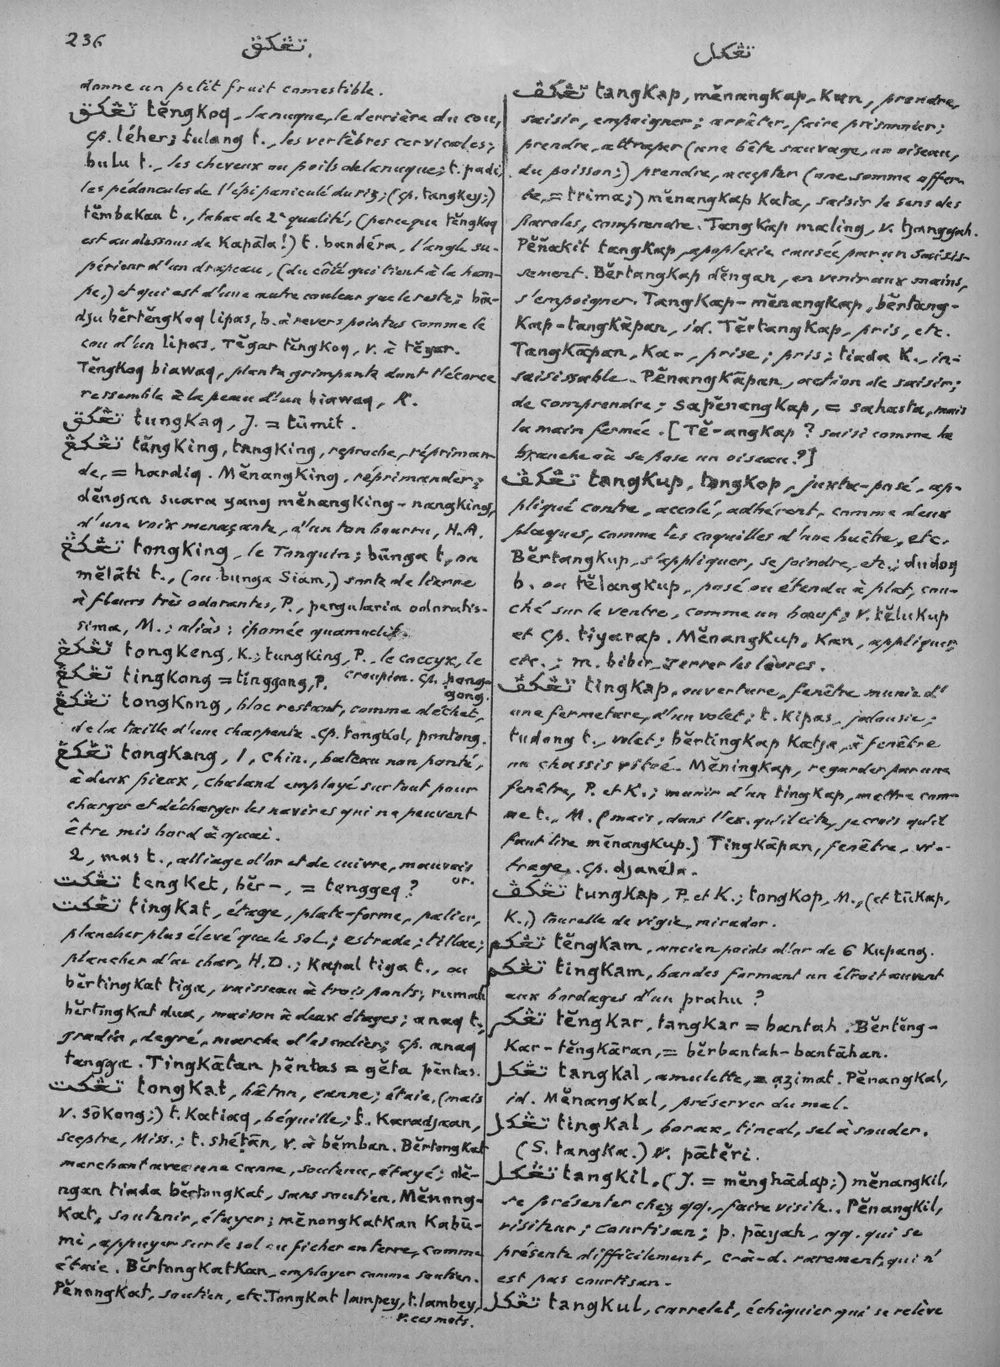 236
تڠکق.
تڠکل
donne un petit fruit comestible.
تڠکق tĕngkoq, la nuque, le derrière du cou,
cp. léher; tulang t., les vertèbres cervicales;
bulu t., les cheveux ou poils de la nuque; t. padi,
les pédoncules de l'épi paniculé du riz; (cp. tangkey;)
tĕmbakau t., tabac de 2e qualité, (parceque tĕngkoq
est au dessous de Kapāla!) t. bandéra, l'angle su-
périeur d'un drapeau, (du côté qui tient à la ham-
pe,) et qui est d'une autre couleur que le reste; bā-
dju bĕrtĕngkoq lipas, b. à revers pointus comme le
cou d'un lipas. Tĕgar tĕngkoq, v. à tĕgar.
Tĕngkoq biawaq, plante grimpante dont l'écorce
ressemble à la peau d'un biawaq, K.
تڠکق tungkaq, J. = tūmit.
تڠکڠ tĕngking, tangking, reproche, répriman-
de, = hardiq. Mĕnangking, réprimander;
dĕngan suara yang mĕnangking-nangking,
d'une voix menaçante, d'un ton bourru, H.A.
تڠکڠ tongking, le Tonquin; būnga t., ou
mĕlāti t., (ou bunga Siam,) sorte de lianne
à fleurs très odorantes, P., pergularia odoratis-
sima, M.; aliàs: ipomée quamoclit.
تڠکڠ tongkeng, K.; tungking, P., le coccyx, le
croupion. cp. pong-
gong.
تڠکڠ tingkong = tinggong, P.
تڠکڠ tongkong, bloc restant, comme déchet,
de la taille d'une charpente. cp. tongkol, pontong.
تڠکڠ tongkang, 1, chin., bateau non ponté,
à deux pieux, chaland employé surtout pour
charger et décharger les navires qui ne peuvent
être mis bord à quai.
2, mas t., alliage d'or et de cuivre, mauvais
or.
تڠکت tengket, bĕr-, = tenggeq?
تڠکت tingkat, étage, plate-forme, palier,
plancher plus élevé que le sol; estrade; tillac;
plancher d'un char, H.D.; kapal tiga t., ou
bĕrtingkat tiga, vaisseau à trois ponts; rumah
bĕrtingkat dua, maison à deux étages; anaq t.,
gradin, degré, marche d'escalier; cp. anaq
tangga. Tingkātan pĕntas = gĕta pĕntas.
تڠکت tongkat, bâton, canne; étaie, (mais
v. sōkong;) t. katiaq, béquille; t. karadjaan,
sceptre, Miss.; t. shétān, v. à bĕmban. Bĕrtongkat
marchant avec une canne, soutenu, étayé; dĕ-
ngan tiada bĕrtongkat, sans soutien. Mĕnong-
kat, soutenir, étayer; mĕnongkatkan kabū-
mi, appuyer sur le sol ou ficher en terre, comme
étaie. Bĕrtongkatkan, employer comme soutien.
Pĕnongkat, soutien, etc. Tongkat lampey, t. lambey,
v. ces mots.
تڠکڤ tangkap, mĕnangkap, kan, prendre,
saisir, empoigner; arrêter, faire prisonnier;
prendre, attraper (une bête sauvage, un oiseau,
du poisson;) prendre, accepter (une somme offer-
te, = trima;) mĕnangkap kata, saisir le sens des
paroles, comprendre. Tangkap maling, v. tjanggah.
Pĕñakit tangkap, apoplexie causée par un saisis-
sement. Bĕrtangkap dĕngan, en venir aux mains,
s'empoigner. Tangkap-mĕnangkap, bĕrtang-
kap-tangkāpan, id. Tĕrtangkap, pris, etc.
Tangkāpan, ka-, prise; pris; tiada k., in-
saisissable. Pĕnangkāpan, action de saisir;
de comprendre; sapĕnangkap, = sahasta, mais
la main fermée. [Tĕ-angkap? saisi comme la
branche où se pose un oiseau?]
تڠکڤ tangkup, tangkop, juxta-posé, ap-
pliqué contre, accolé, adhérent, comme deux
plaques, comme les coquilles d'une huître, etc.
Bĕrtangkup, s'appliquer, se joindre, etc.; duduq
b. ou tĕlangkup, posé ou étendu à plat, cou-
ché sur le ventre, comme un bœuf; v. tĕlukup
et cp. tiyarap. Mĕnangkup, kan, appliquer,
etc.; m. bibir, serrer les lèvres.
تڠکڤ tingkap, ouverture, fenêtre munie d'
une fermeture, d'un volet; t. kipas, jalousie;
tudong t., volet; bĕrtingkap katja, à fenêtre
ou chassis vitré. Mĕningkap, regarder par une
fenêtre, P. et K.; munir d'un tingkap, mettre com-
me t., M. (mais, dans l'ex. qu'il cite, je crois qu'il
faut lire mĕnangkup.) Tingkāpan, fenêtre, vi-
trage. Cp. djanéla.
تڠکڤ tungkap, P. et K.; tongkop, M., (et tūkap,
K.,) tourelle de vigie, mirador.
تڠکم tĕngkam, ancien poids d'or de 6 kupang.
تڠکم tingkam, bandes formant un étroit auvent
aux bordages d'un prahu?
تڠکر tĕngkar, tangkar = bantah. Bĕrtĕng-
kar-tĕngkāran, = bĕrbantah-bantāhan.
تڠکل tangkal, amulette, = azimat. Pĕnangkal,
id. Mĕnangkal, préserver du mal.
تڠکل tingkal, borax, tincal, sel à souder.
(S. tangka.) v. pātĕri.
تڠکل tangkil, (J. = mĕnghādap;) mĕnangkil,
se présenter chez qq., faire visite. Pĕnangkil,
visiteur; courtisan; p. pāyah, qq. qui se
présente difficilement, c-à-d. rarement, qui n'
est pas courtisan.
تڠکل tangkul, carrelet, échiquier qui se relève